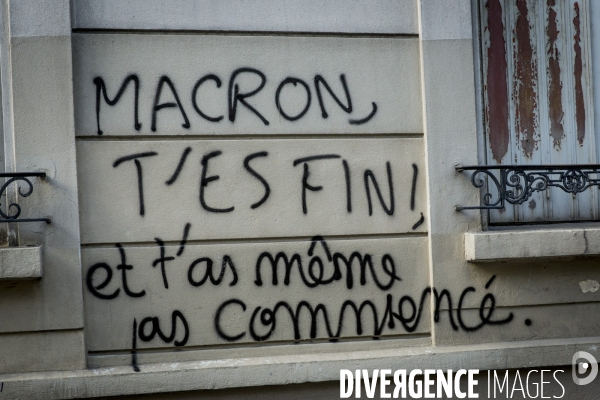 MACRON,
T'ES FINI,
et t'as même
pas commencé.
DIVERGENCE IMAGES